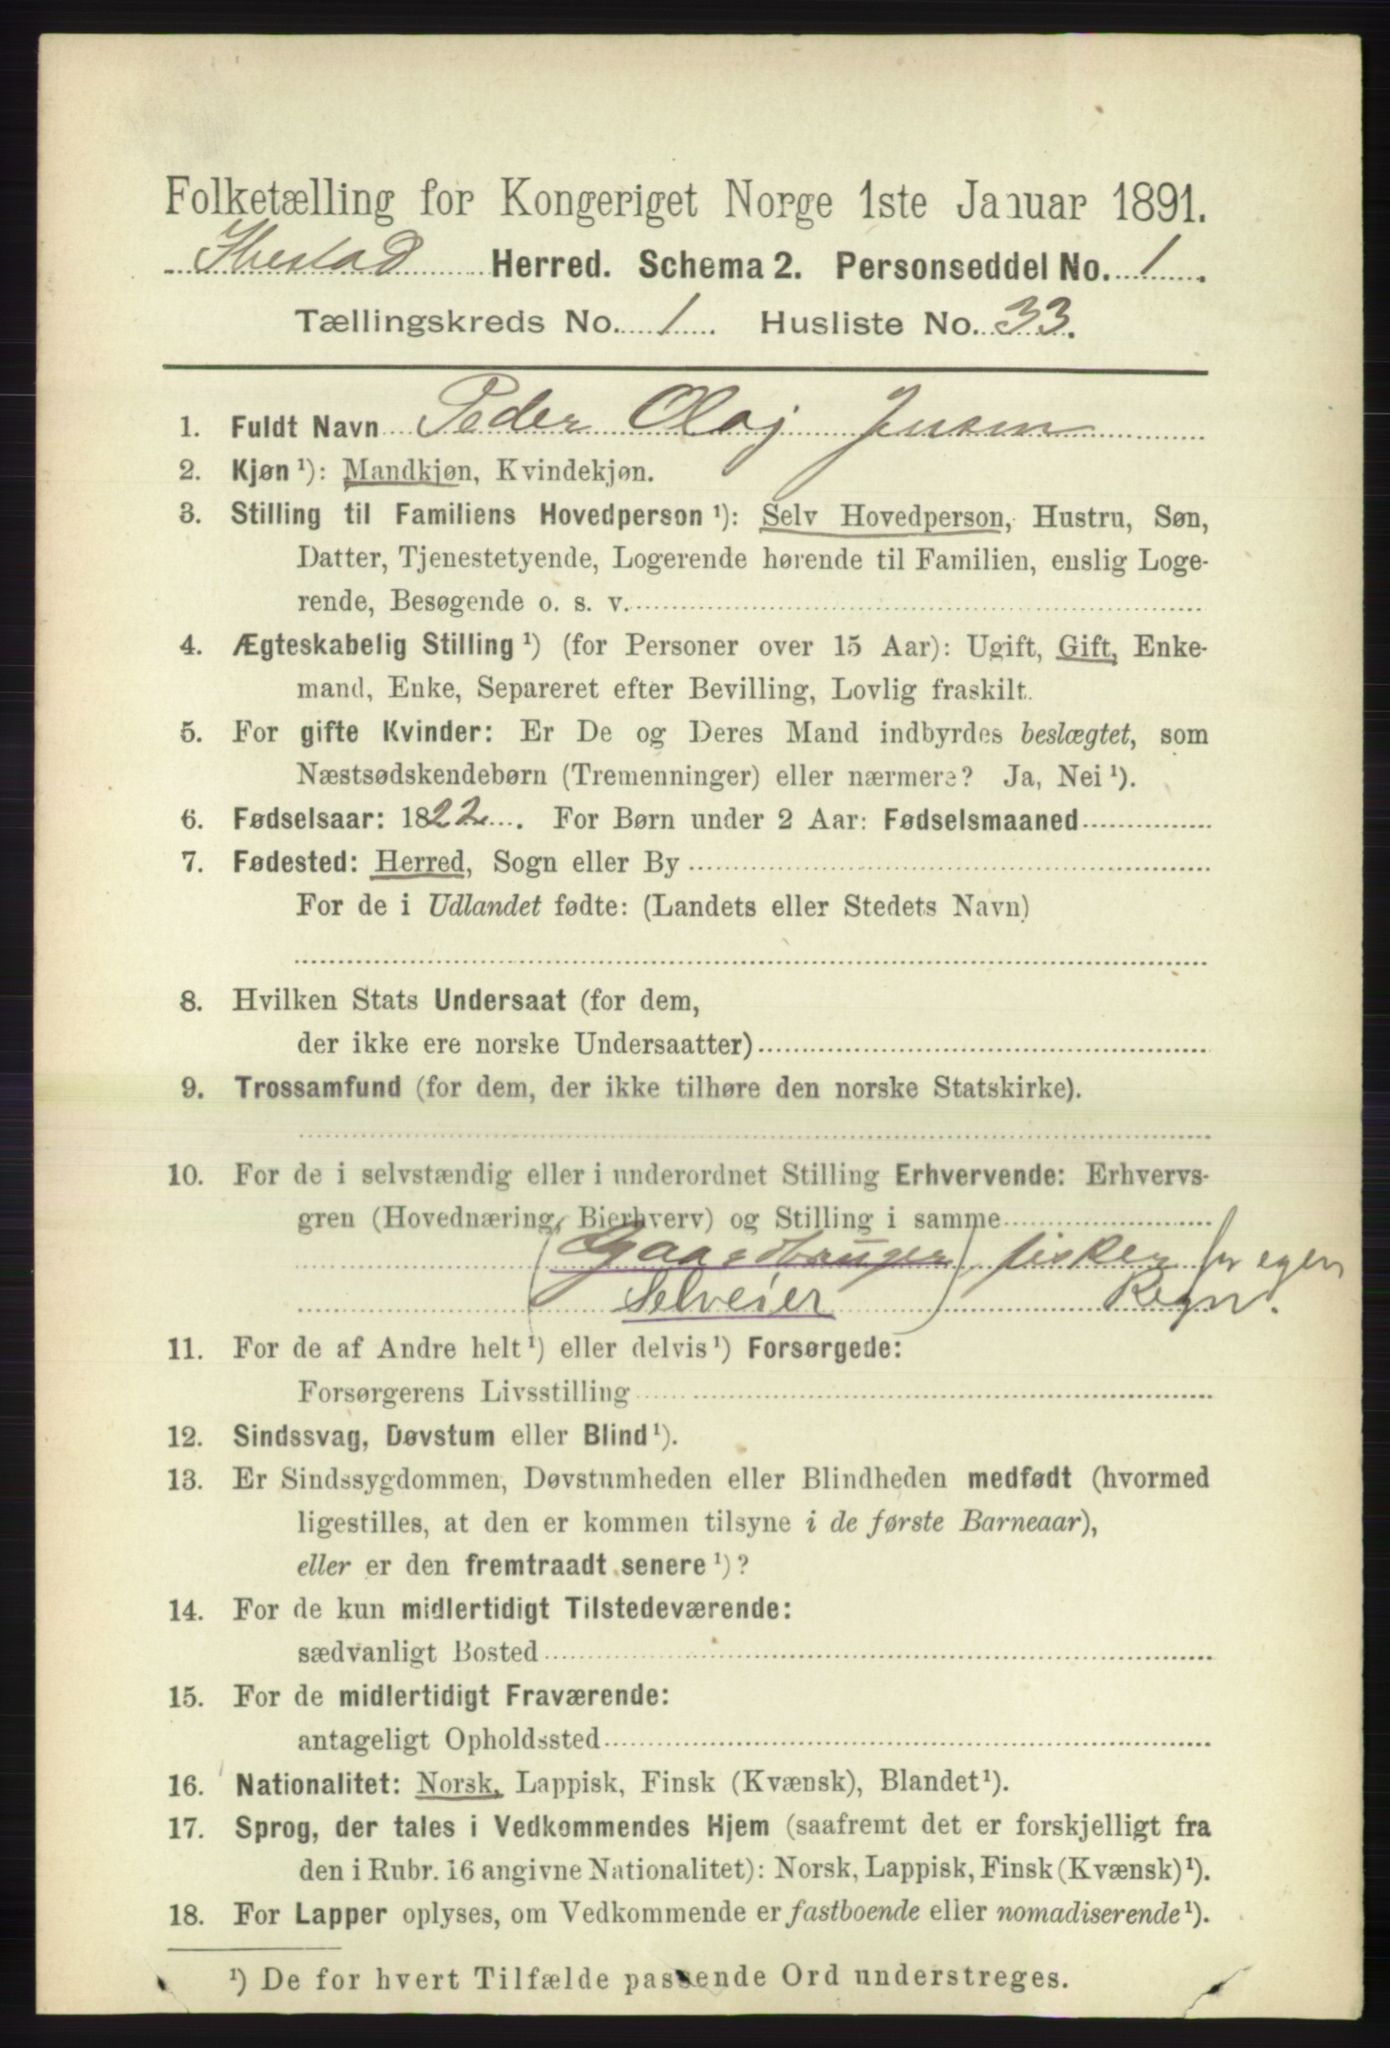 Folketælling for Kongeriget Norge 1ste Januar 1891.
Ibestad Herred. Schema 2. Personseddel No. 1.
Tællingskreds No. 1. Husliste No. 33.
1. Fuldt Navn Peder Olaj Jensen
2. Kjøn ¹): Mandkjøn, Kvindekjøn.
3. Stilling til Familiens Hovedperson ¹): Selv Hovedperson, Hustru, Søn,
Datter, Tjenestetyende, Logerende hørende til Familien, enslig Loge-
rende, Besøgende o. s. v.
4. Ægteskabelig Stilling ¹) (for Personer over 15 Aar): Ugift, Gift, Enke-
mand, Enke, Separeret efter Bevilling, Lovlig fraskilt.
5. For gifte Kvinder: Er De og Deres Mand indbyrdes beslægtet, som
Næstsødskendebørn (Tremenninger) eller nærmere? Ja, Nei ¹).
6. Fødselsaar: 1822. For Børn under 2 Aar: Fødselsmaaned
7. Fødested: Herred, Sogn eller By
For de i Udlandet fødte: (Landets eller Stedets Navn)
8. Hvilken Stats Undersaat (for dem,
der ikke ere norske Undersaatter)
9. Trossamfund (for dem, der ikke tilhøre den norske Statskirke).
10. For de i selvstændig eller i underordnet Stilling Erhvervende: Erhvervs-
gren (Hovednæring, Bierhverv) og Stilling i samme
(Gaardbruger) fisker for egen
Selveier Regn.
11. For de af Andre helt ¹) eller delvis ¹) Forsørgede:
Forsørgerens Livsstilling
12. Sindssvag, Døvstum eller Blind ¹).
13. Er Sindssygdommen, Døvstumheden eller Blindheden medfødt (hvormed
ligestilles, at den er kommen tilsyne i de første Barneaar),
eller er den fremtraadt senere ¹)?
14. For de kun midlertidigt Tilstedeværende:
sædvanligt Bosted
15. For de midlertidigt Fraværende:
antageligt Opholdssted
16. Nationalitet: Norsk, Lappisk, Finsk (Kvænsk), Blandet ¹).
17. Sprog, der tales i Vedkommendes Hjem (saafremt det er forskjelligt fra
den i Rubr. 16 angivne Nationalitet): Norsk, Lappisk, Finsk (Kvænsk) ¹).
18. For Lapper oplyses, om Vedkommende er fastboende eller nomadiserende ¹).
¹) De for hvert Tilfælde passende Ord understreges.